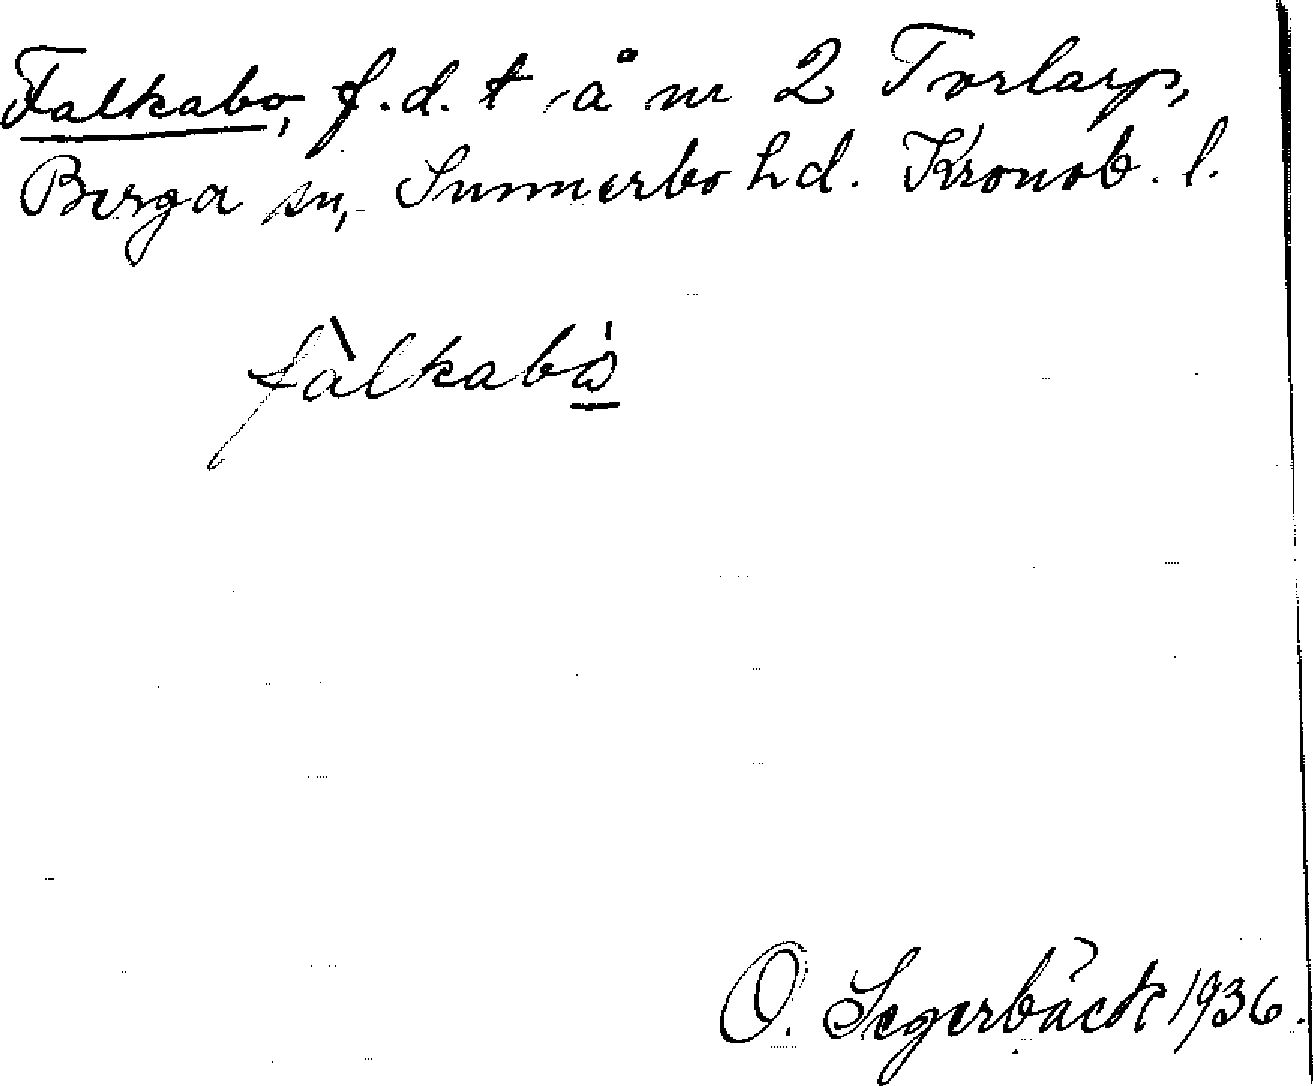 Falkabo, f.d. t å nr 2 Torlarp,
Berga sn, Sunnerbo hd. Kronob. l.
fàlkabó
O. Segerbäck 1936.